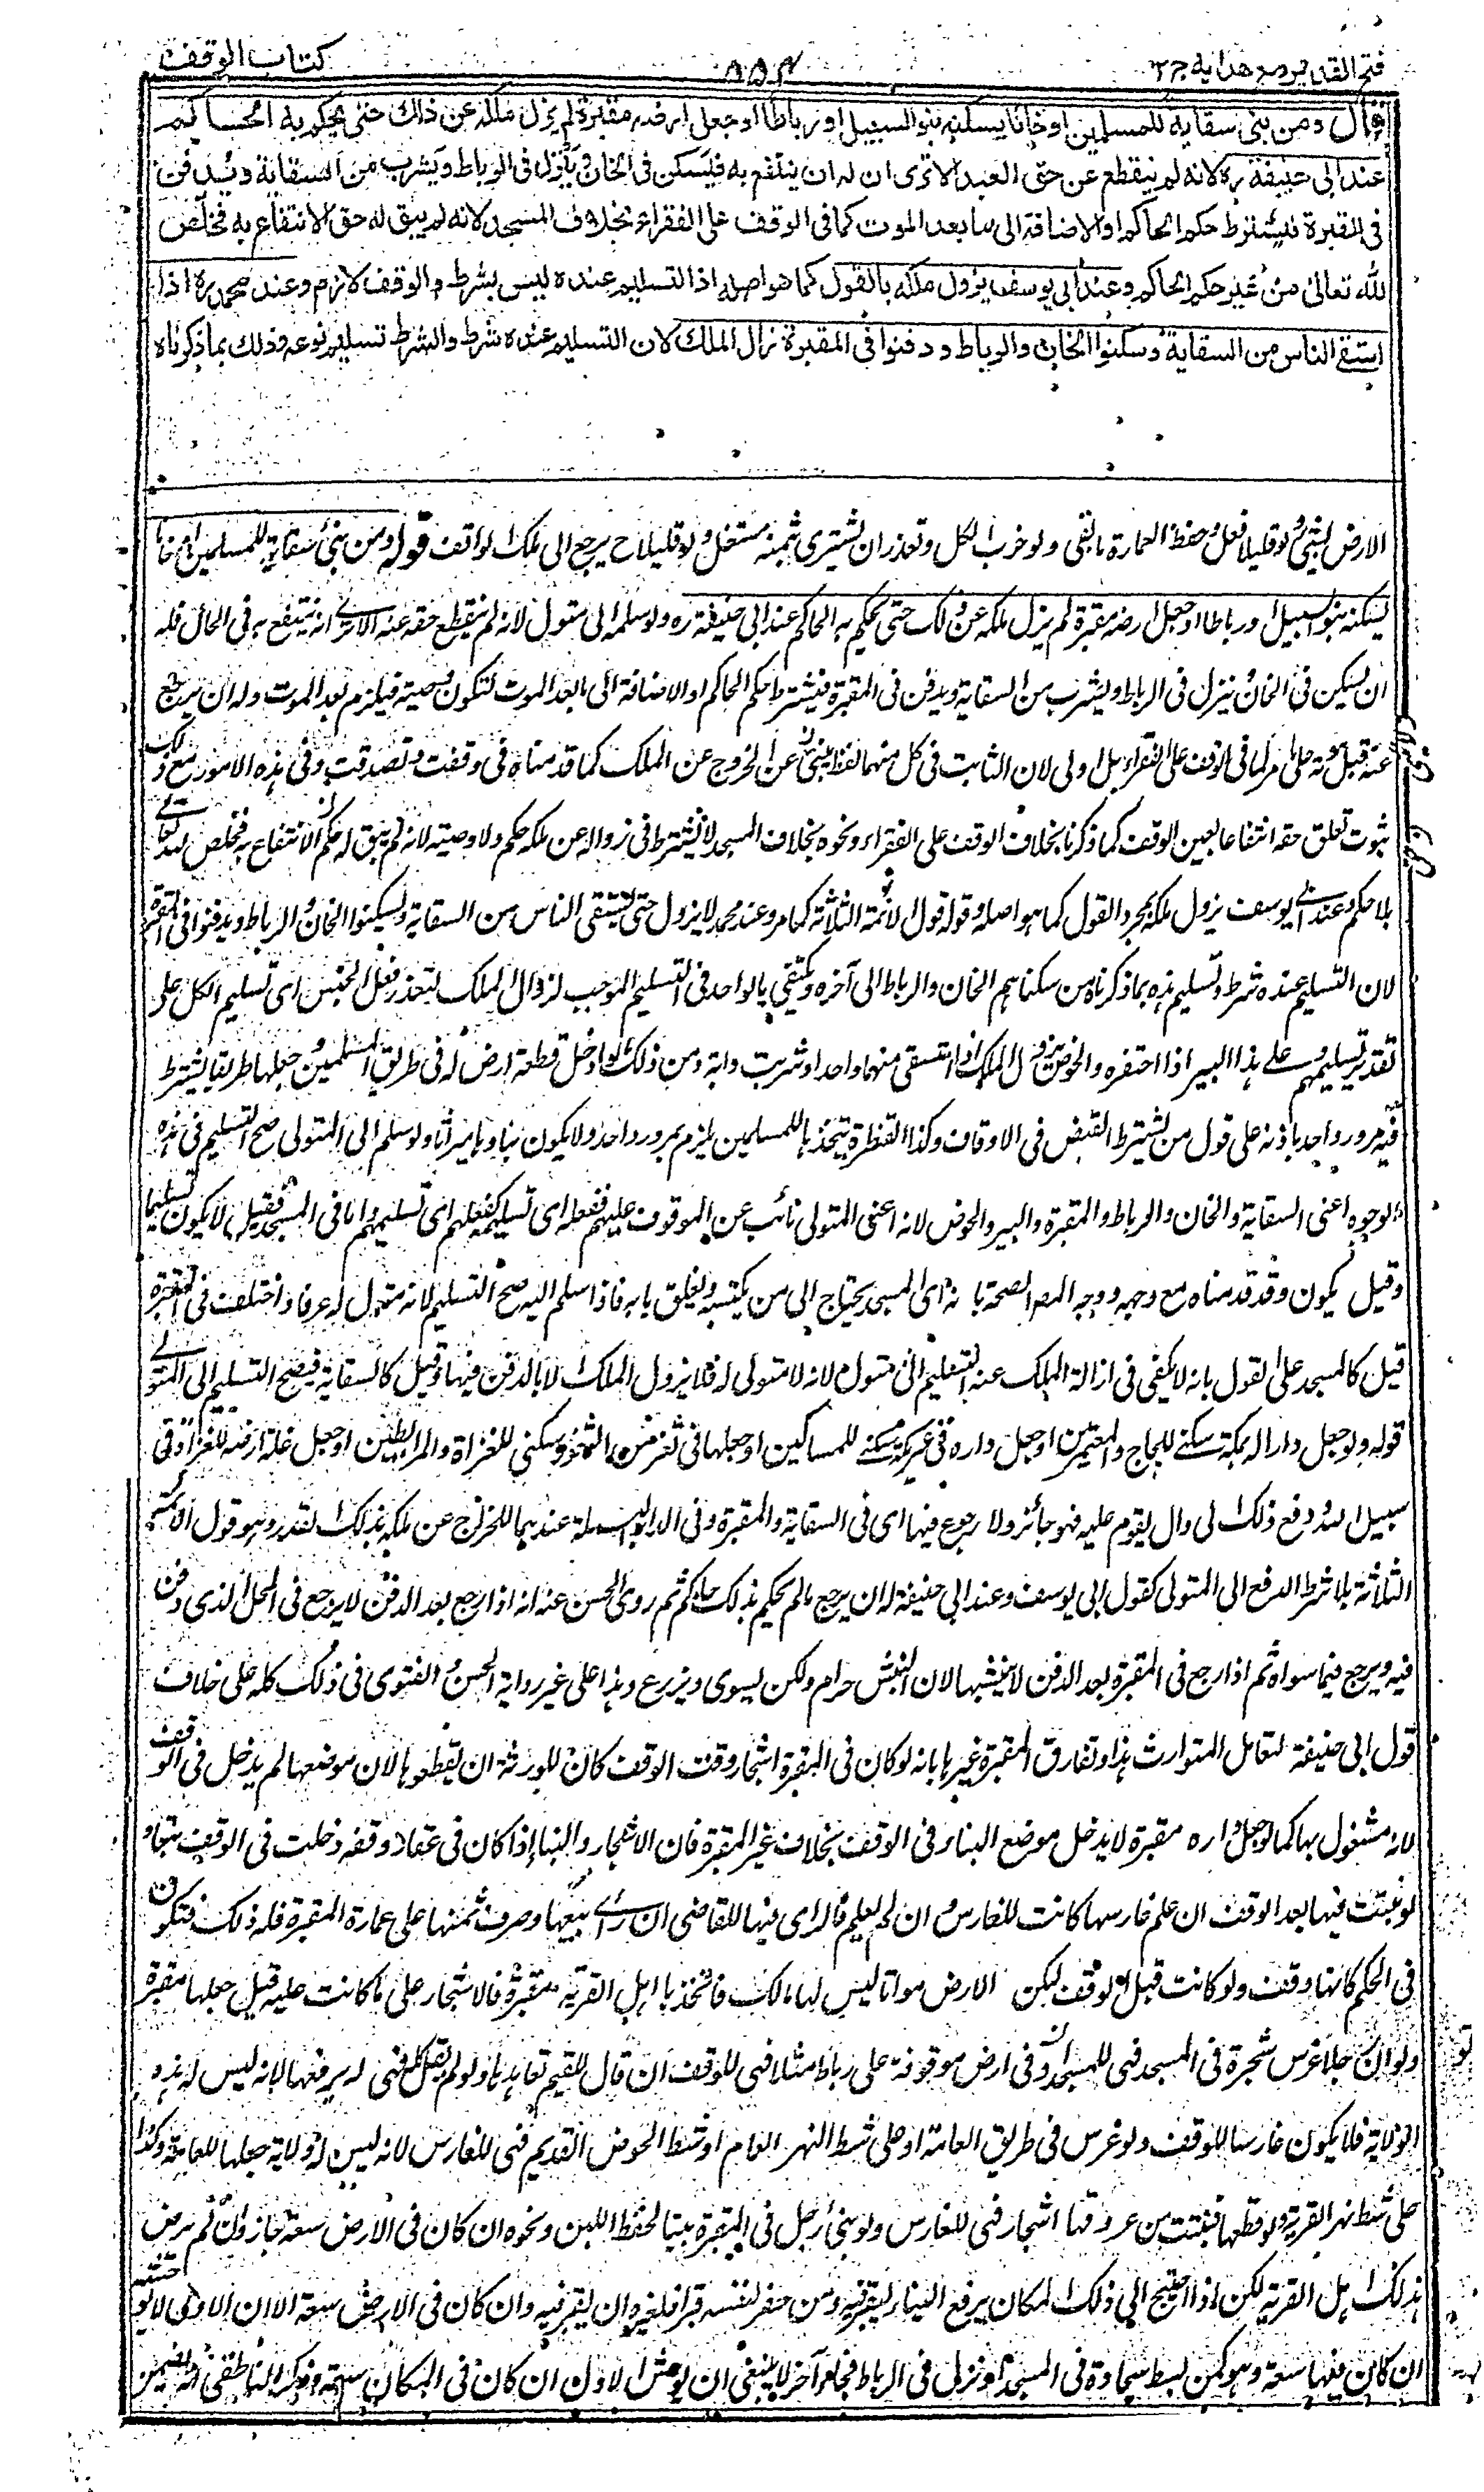 فتح القدير مع هدايه ج ٢
٨٥٤
كتاب الوقف
قال ومن بنى سقاية للمسلمين او خانا يسكنه بنو السبيل او رباطا او جعل ارضه مقبرة لم يزل ملكه عن ذلك حتى يحكم به الحاكم
عند ابى حنيفة ره لانه لم ينقطع عن حق العبد الا ترى ان له ان ينتفع به فيسكن فى الخان وينزل فى الرباط ويشرب من السقاية ويدفن
فى المقبرة فيشترط حكم الحاكم او الاضافة الى ما بعد الموت كما فى الوقف على الفقراء بخلاف المسجد لانه لم يبق له حق الانتفاع به فخلص
لله تعالى من غير حكم الحاكم وعند ابى يوسف يزول ملكه بالقول كما هو اصله اذ التسليم عنده ليس بشرط والوقف لازم وعند محمد ره اذا
استقى الناس من السقاية وسكنوا الخان والرباط ودفنوا فى المقبرة زال الملك لان التسليم عنده شرط والشرط تسليم نوعه وذلك بما ذكرناه
الارض بشئ ولو قليلا فعل وحفظ العمارة ما بقى ولو خرب الكل وتعذر ان يشترى بثمنه مستغل ولو قليلا ح يرجع الى ملك الواقف قوله ومن بنى سقاية للمسلمين او خانا
يسكنه بنو السبيل او رباطا او جعل ارضه مقبرة لم يزل ملكه عن ذلك حتى يحكم به الحاكم عند ابى حنيفة ره ولو سلمه الى متول لانه لم ينقطع حقه عنه الا ترى انه ينتفع به فى الحال فله
ان يسكن فى الخان وينزل فى الرباط ويشرب من السقاية ويدفن فى المقبرة فيشترط حكم الحاكم او الاضافة الى ما بعد الموت لتكون وصية فيلزم بعد الموت وله ان يرجع
عنه قبل موته على ما مر كما فى الوقف على الفقراء بل اولى لان الثابت فى كل منهما لفظ ينبئ عن الخروج عن الملك كما قدمناه فى وقفت وتصدقت وفى هذه الامور مع ذلك
ثبوت تعلق حقه انتفاعا بعين الوقف كما ذكرنا بخلاف الوقف على الفقراء ونحوه بخلاف المسجد لا يشترط فى زواله عن ملكه حكم ولا وصية لانه لم يبق له حكم الانتفاع به فخلص لله تعالى
بلا حكم وعند ابى يوسف يزول ملكه بمجرد القول كما هو اصله وقوله قول الائمة الثلاثة كما مر وعند محمد لا يزول حتى يستقى الناس من السقاية ويسكنوا الخان والرباط ويدفنوا فى المقبرة
لان التسليم عنده شرط وتسليم هذه بما ذكرناه من سكناهم الخان والرباط الى آخره ويكتفى بالواحد فى التسليم الموجب لزوال الملك لتعذر فعل الجنس اى تسليم الكل على
تقدير تسليمهم وعلى هذا البير اذا احتفره والحوض يزول الملك اذا استسقى منهما واحد او شربت دابة ومن ذلك لو ادخل قطعة ارض له فى طريق المسلمين وجعلها طريقا يشترط
فيه مرور واحد باذنه على قول من يشترط القبض فى الاوقاف وكذا القنطرة يتخذها للمسلمين يلزم بمرور واحد ولا يكون بناؤها ميراثا ولو سلم الى المتولى صح التسليم فى هذه
الوجوه اعنى السقاية والخان والرباط والمقبرة والبير والحوض لانه اعنى المتولى نائب عن الموقوف عليهم ففعله اى تسليمه كفعلهم اى تسليمهم واما فى المسجد فقيل لا يكون تسليما
وقيل يكون وقد قدمناه مع وجهه ووجه المصـ الصحة بانه اى المسجد يحتاج الى من يكنسه ويغلق بابه فاذا سلم اليه صح التسليم لانه متول له عرفا واختلف فى المقبرة
قيل كالمسجد على القول بانه لا يكفى فى ازالة الملك عنه التسليم الى متول لانه لا متولى له فلا يزول الملك الا بالدفن فيها وقيل كالسقاية فيصح التسليم الى المتولى
قوله ولو جعل دارا له بمكة سكنى للحاج والمعتمرين او جعل داره فى غير مكة سكنى للمساكين او جعلها فى ثغر من الثغور سكنى للغزاة والمرابطين او جعل غلة ارضه للغزاة فى
سبيل الله ودفع ذلك الى وال يقوم عليه فهو جائز ولا رجوع فيها اى فى السقاية والمقبرة وفى الدار المسبلة عندهما للخروج عن ملكه بذلك القدر وهو قول الائمة
الثلاثة بلا شرط الدفع الى المتولى كقول ابى يوسف وعند ابى حنيفة له ان يرجع ما لم يحكم بذلك حاكم ثم روى الحسن عنه انه اذا رجع بعد الدفن لا يرجع فى المحل الذى دفن
فيه ويرجع فيما سواه ثم اذا رجع فى المقبرة بعد الدفن لا ينبشها لان النبش حرام ولكن يسوى ويزرع وهذا على غير رواية الحسن والفتوى فى ذلك كله على خلاف
قول ابى حنيفة للتعامل المتوارث هذا وتفارق المقبرة غيرها بانه لو كان فى المقبرة اشجار وقت الوقف كان للورثة ان يقطعوها لان موضعها لم يدخل فى الوقف
لانه مشغول بها كما لو جعل داره مقبرة لا يدخل موضع البناء فى الوقف بخلاف غير المقبرة فان الاشجار والبناء اذا كان فى عقار وقفه دخلت فى الوقف تبعا و
لو نبتت فيها بعد الوقف ان علم غارسها كانت للغارس وان لم يعلم فالراى فيها للقاضى ان رأى بيعها وصرف ثمنها على عمارة المقبرة فله ذلك فتكون
فى الحكم كانها وقف ولو كانت قبل الوقف لكن الارض موات ليس لها مالك فاتخذها اهل القرية مقبرة فالاشجار على ما كانت عليه قبل جعلها مقبرة
ولو ان رجلا غرس شجرة فى المسجد فهى للمسجد او فى ارض موقوفة على رباط مثلا فهى للوقف ان قال للقيم تعاهدها ولو لم يقل فهى له يرفعها لانه ليس له هذه
الولاية فلا يكون غارسا للوقف ولو غرس فى طريق العامة او على شط النهر العام او شط الحوض القديم فهى للغارس لانه ليس له ولاية جعلها للعامة وكذا
على شط نهر القرية ولو قطعها فنبتت من عروقها اشجار فهى للغارس ولو بنى رجل فى المقبرة بيتا لحفظ اللبن ونحوه ان كان فى الارض سعة جاز وان لم يرض
بذلك اهل القرية لكن اذا احتيج الى ذلك المكان يرفع البناء ليقبر فيه ومن حفر لنفسه قبرا فلغيره ان يقبر فيه وان كان فى الارض سعة الا ان الاولى لا يوحشه
ان كان فيها سعة وهو كمن بسط سجادة فى المسجد او نزل فى الرباط فجاء آخر لا ينبغى ان يوحش الاول ان كان فى المكان سعة وذكر الناطفى